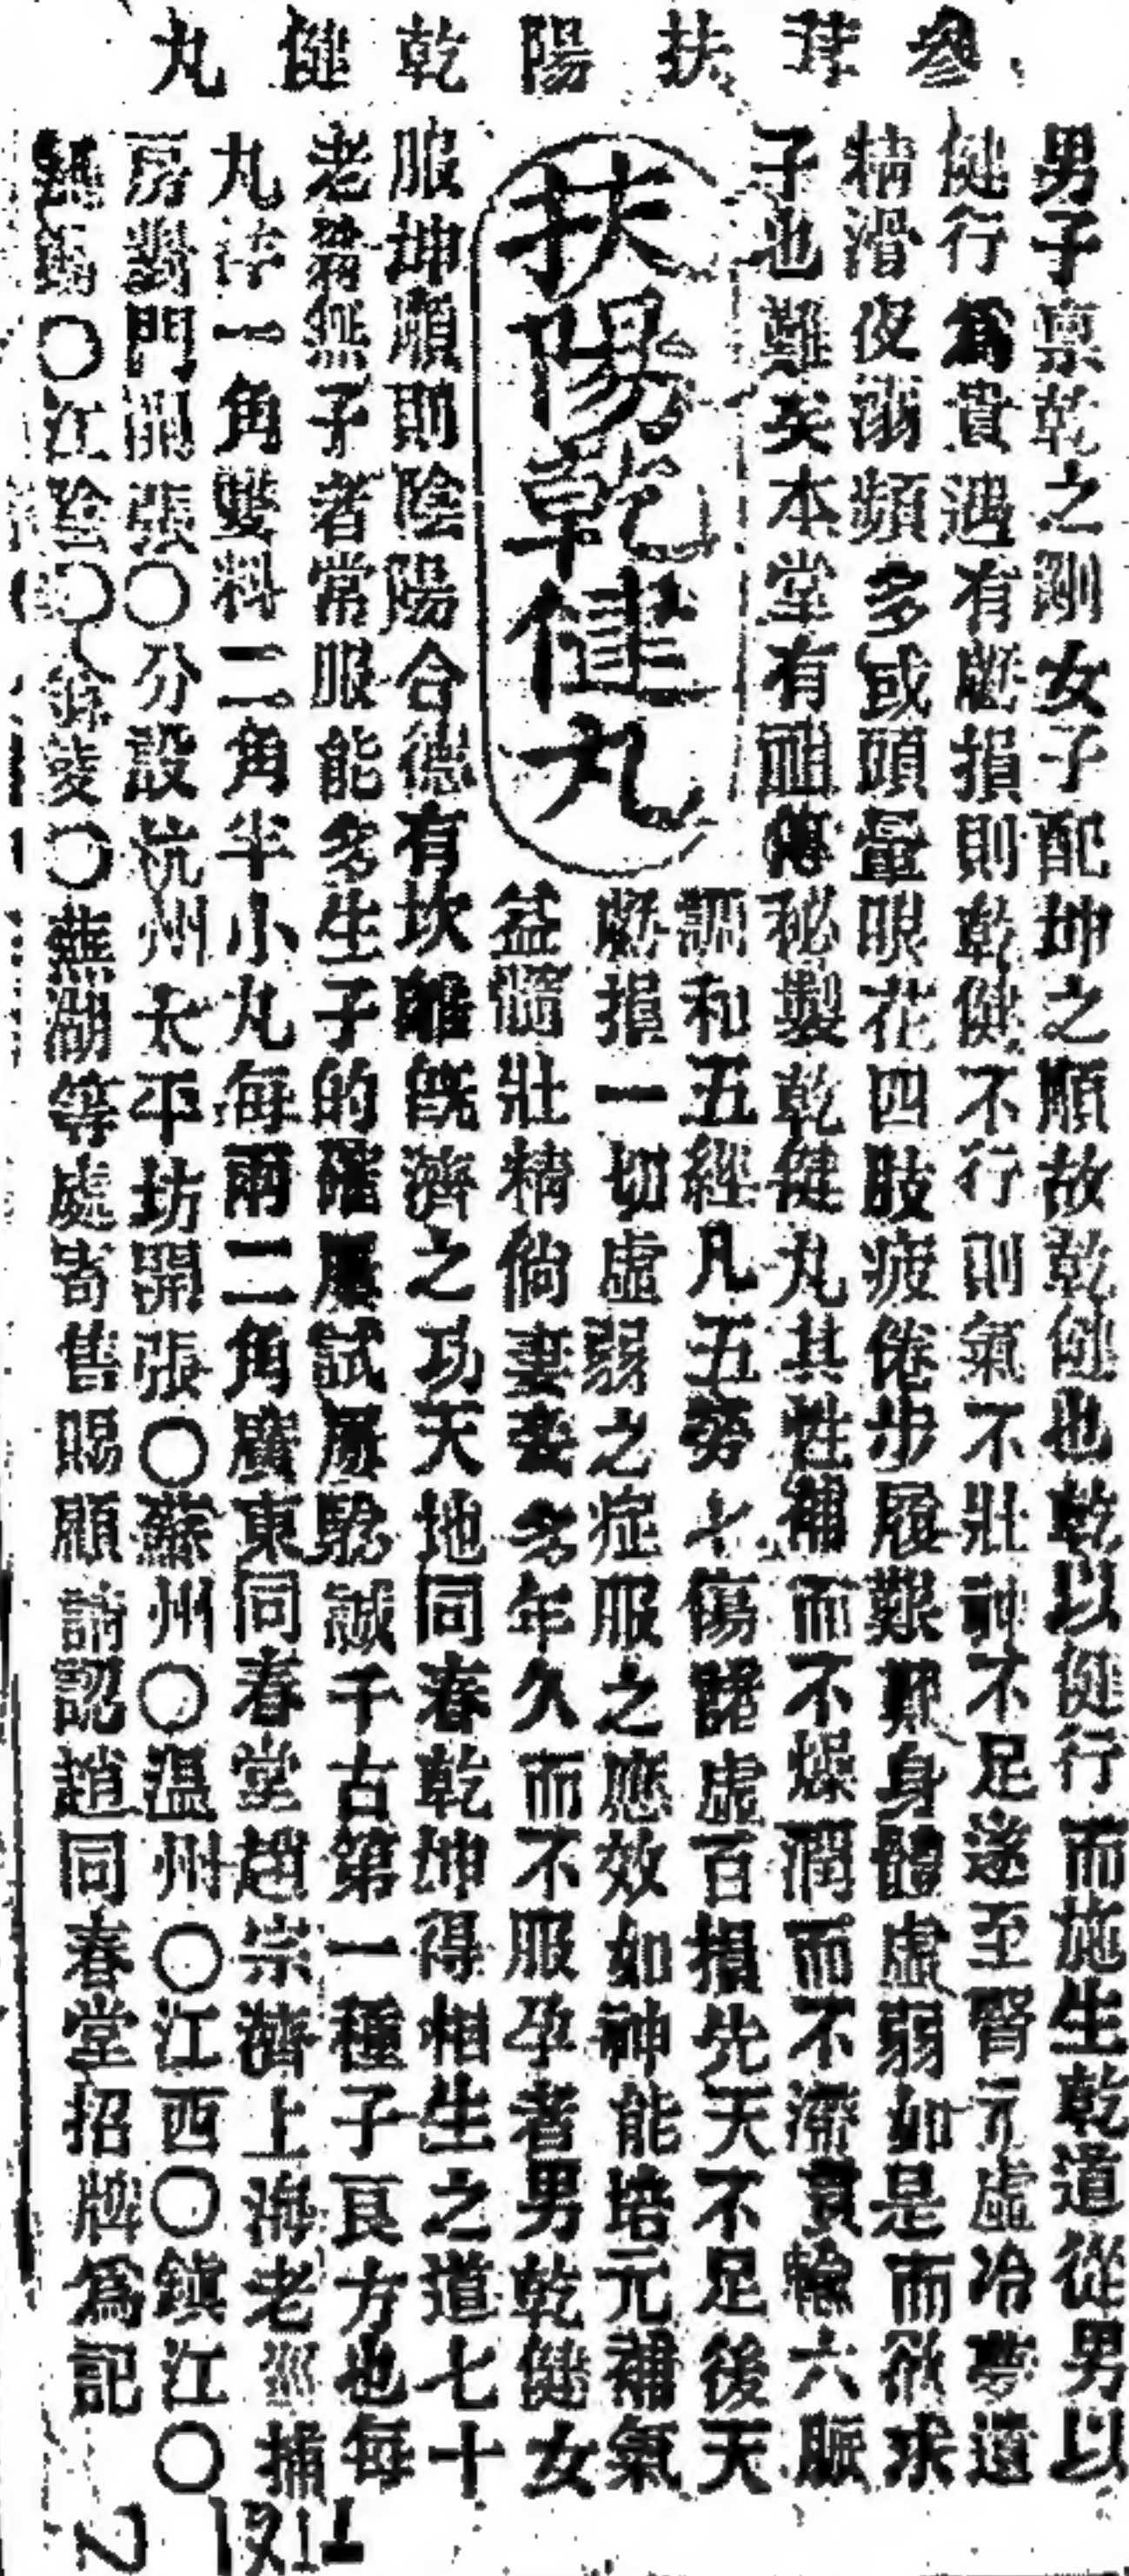 參茸扶陽乾健丸
男子禀乾之剛女子配坤之順故乾健也乾以健行而施生乾道從男以
健行爲貴遇有虧損則乾健不行則氣不壯神不足遂至腎元虛冷夢遺
精滑夜溺頻多或頭暈眼花四肢疲倦步履艱難身體虛弱如是而欲求
子也難矣本堂有祖傳秘製乾健丸其性補而不燥潤而不滯貫輸六脈
扶陽乾健丸
調和五經凡五勞七傷諸虛百損先天不足後天
虧損一切虛弱之症服之應效如神能培元補氣
益髓壯精倘妻妾多年久而不服孕者男乾健女
服坤順則陰陽合德有坎離旣濟之功天地同春乾坤得相生之道七十
老翁無子者常服能多生子的確屢試屢驗誠千古第一種子良方也每
丸洋一角雙料二角半小丸每兩二角廣東同春堂趙宗濟上海老巡捕
房對門開張〇分設杭州太平坊開張〇蘇州〇温州〇江西〇鎮江〇
無錫〇江陰〇〇蕪湖等處寄售賜顧請認趙同春堂招牌爲記